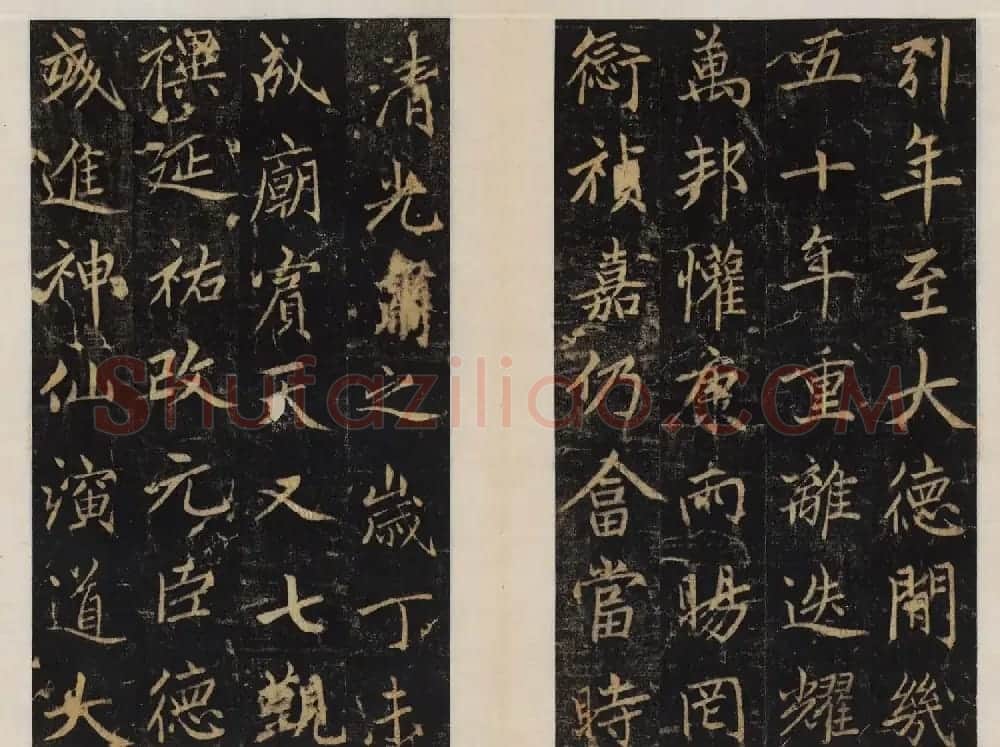 引年至大德閒幾
五十年重離迭耀
萬邦懽康雨暘罔
愆禎嘉仍畣當時
清光之歲丁未
成廟賓天又七觀
禩延祐改元臣德
彧進神仙演道大
Shufaziliao.COM